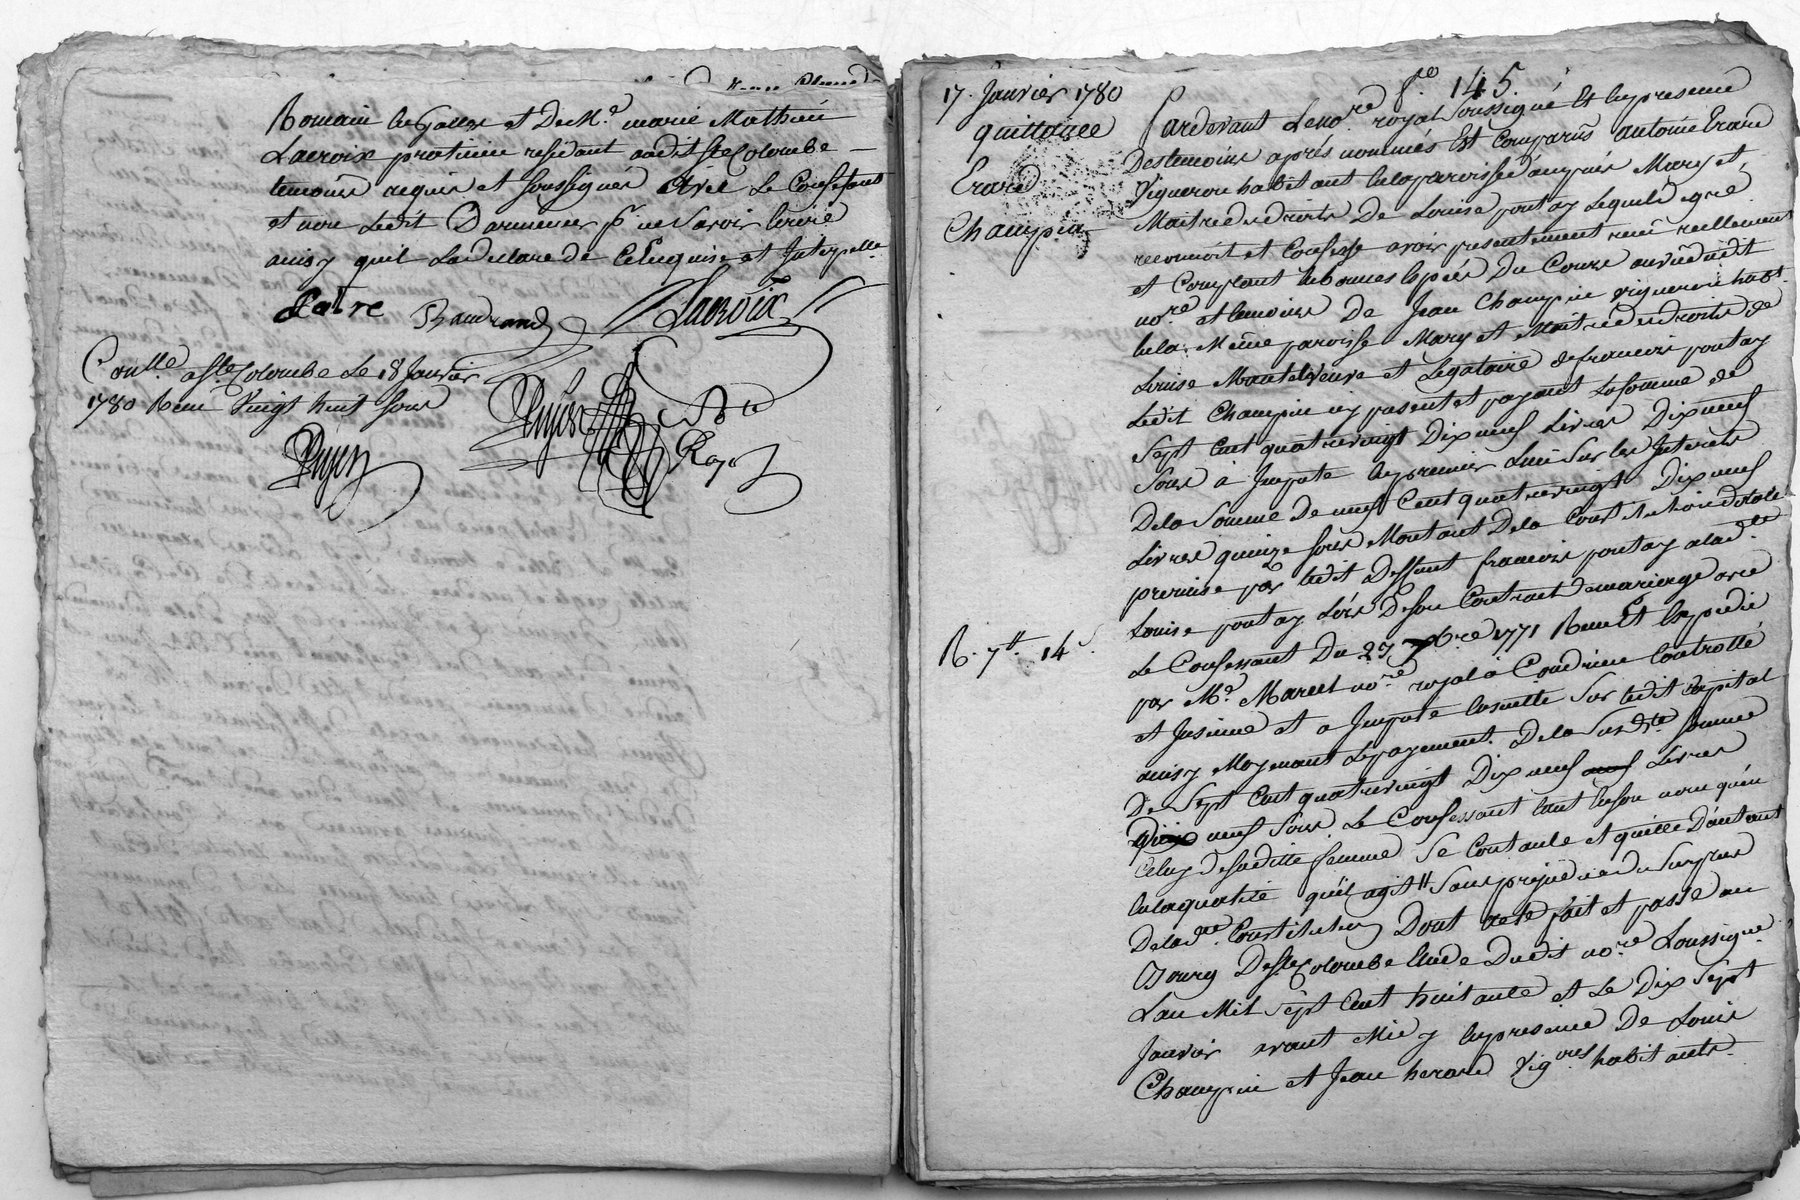 Romain et De Mr. marie Mathieu
Lacroix praticien residant audit ste Colombe
temoins requis et soussignés avec Le Confessant
et non Ledit Darmencier pr. ne savoir Ecrire
ainsy quil La declaré de Ce Enquis et Interpellé
Baudrand Lacroix
Conllé. a ste Colombe Le 18 Janvier
1780 Reçu vingt huit sous
17. Janvier 1780
quittance
Erard
Champin
R. 7tt. 14s.
fo. 145.
Pardevant Le nore. royal soussigné Et En presence
Des temoins aprés nommés Est Comparus antoine Erard
Vigneron habitant en la paroisse d'ampuis Mary et
Maitre des droits De Louise pontay Lequel de gré
reconnoit et Confesse avoir presentement reçu reellement
et Comptant En bonnes Espéces Du Cours au vû dudit
nore. et temoins De Jean Champin vigneron habt.
En la Même paroisse Mary et Maitre des droits de
Louise Montelvieure et Legataire de francois pontay
Ledit Champin icy present et payant La somme de
Sept Cent quatrevingt Dix neuf Livres Dix neuf
Sous à Imputé En premier Lieu Sur Les Interets
De la Somme De neuf Cent quatrevingt Dix neuf
Livres quinze sous Montant De la Constitution dotale
promise par Ledit Deffunt francois pontay a lade.
Louise pontay Lors De son Contract de mariage avec
Le Confessant Du 27 7bre 1771 Reçu Et Expedié
par Me. Marcel nore. royal a Condrieu Controllé
et Insinué et a Imputé Ensuitte Sur Ledit Capital
ainsy Moyenant Le payement De la Susdte. somme
De Sept Cent quatrevingt Dix neuf neuf Livres
Dix neuf Sous Le Confessant tant En son nom qu'en
Celuy De saditte femme Se Contante et quitte D'autant
En la qualité qu'il agit tt Sans prejudice du Surplus
De la dte. Constitution Dont acte fait et passé au
Bourg De ste Colombe Etude Dudit nore Soussigné
L'an Mil Sept Cent huitante et Le Dix Sept
Janvier avant Midy En presence De Louis
Champin et Jean herard Vignons habitants